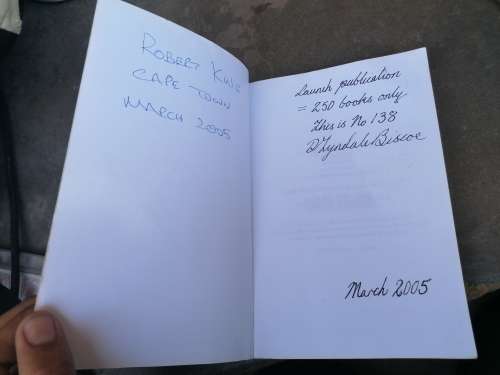 ROBERT KING
CAPE TOWN
MARCH 2005
Launch publication
= 250 books only.
This is No 138
D Tyndale-Biscoe
March 2005